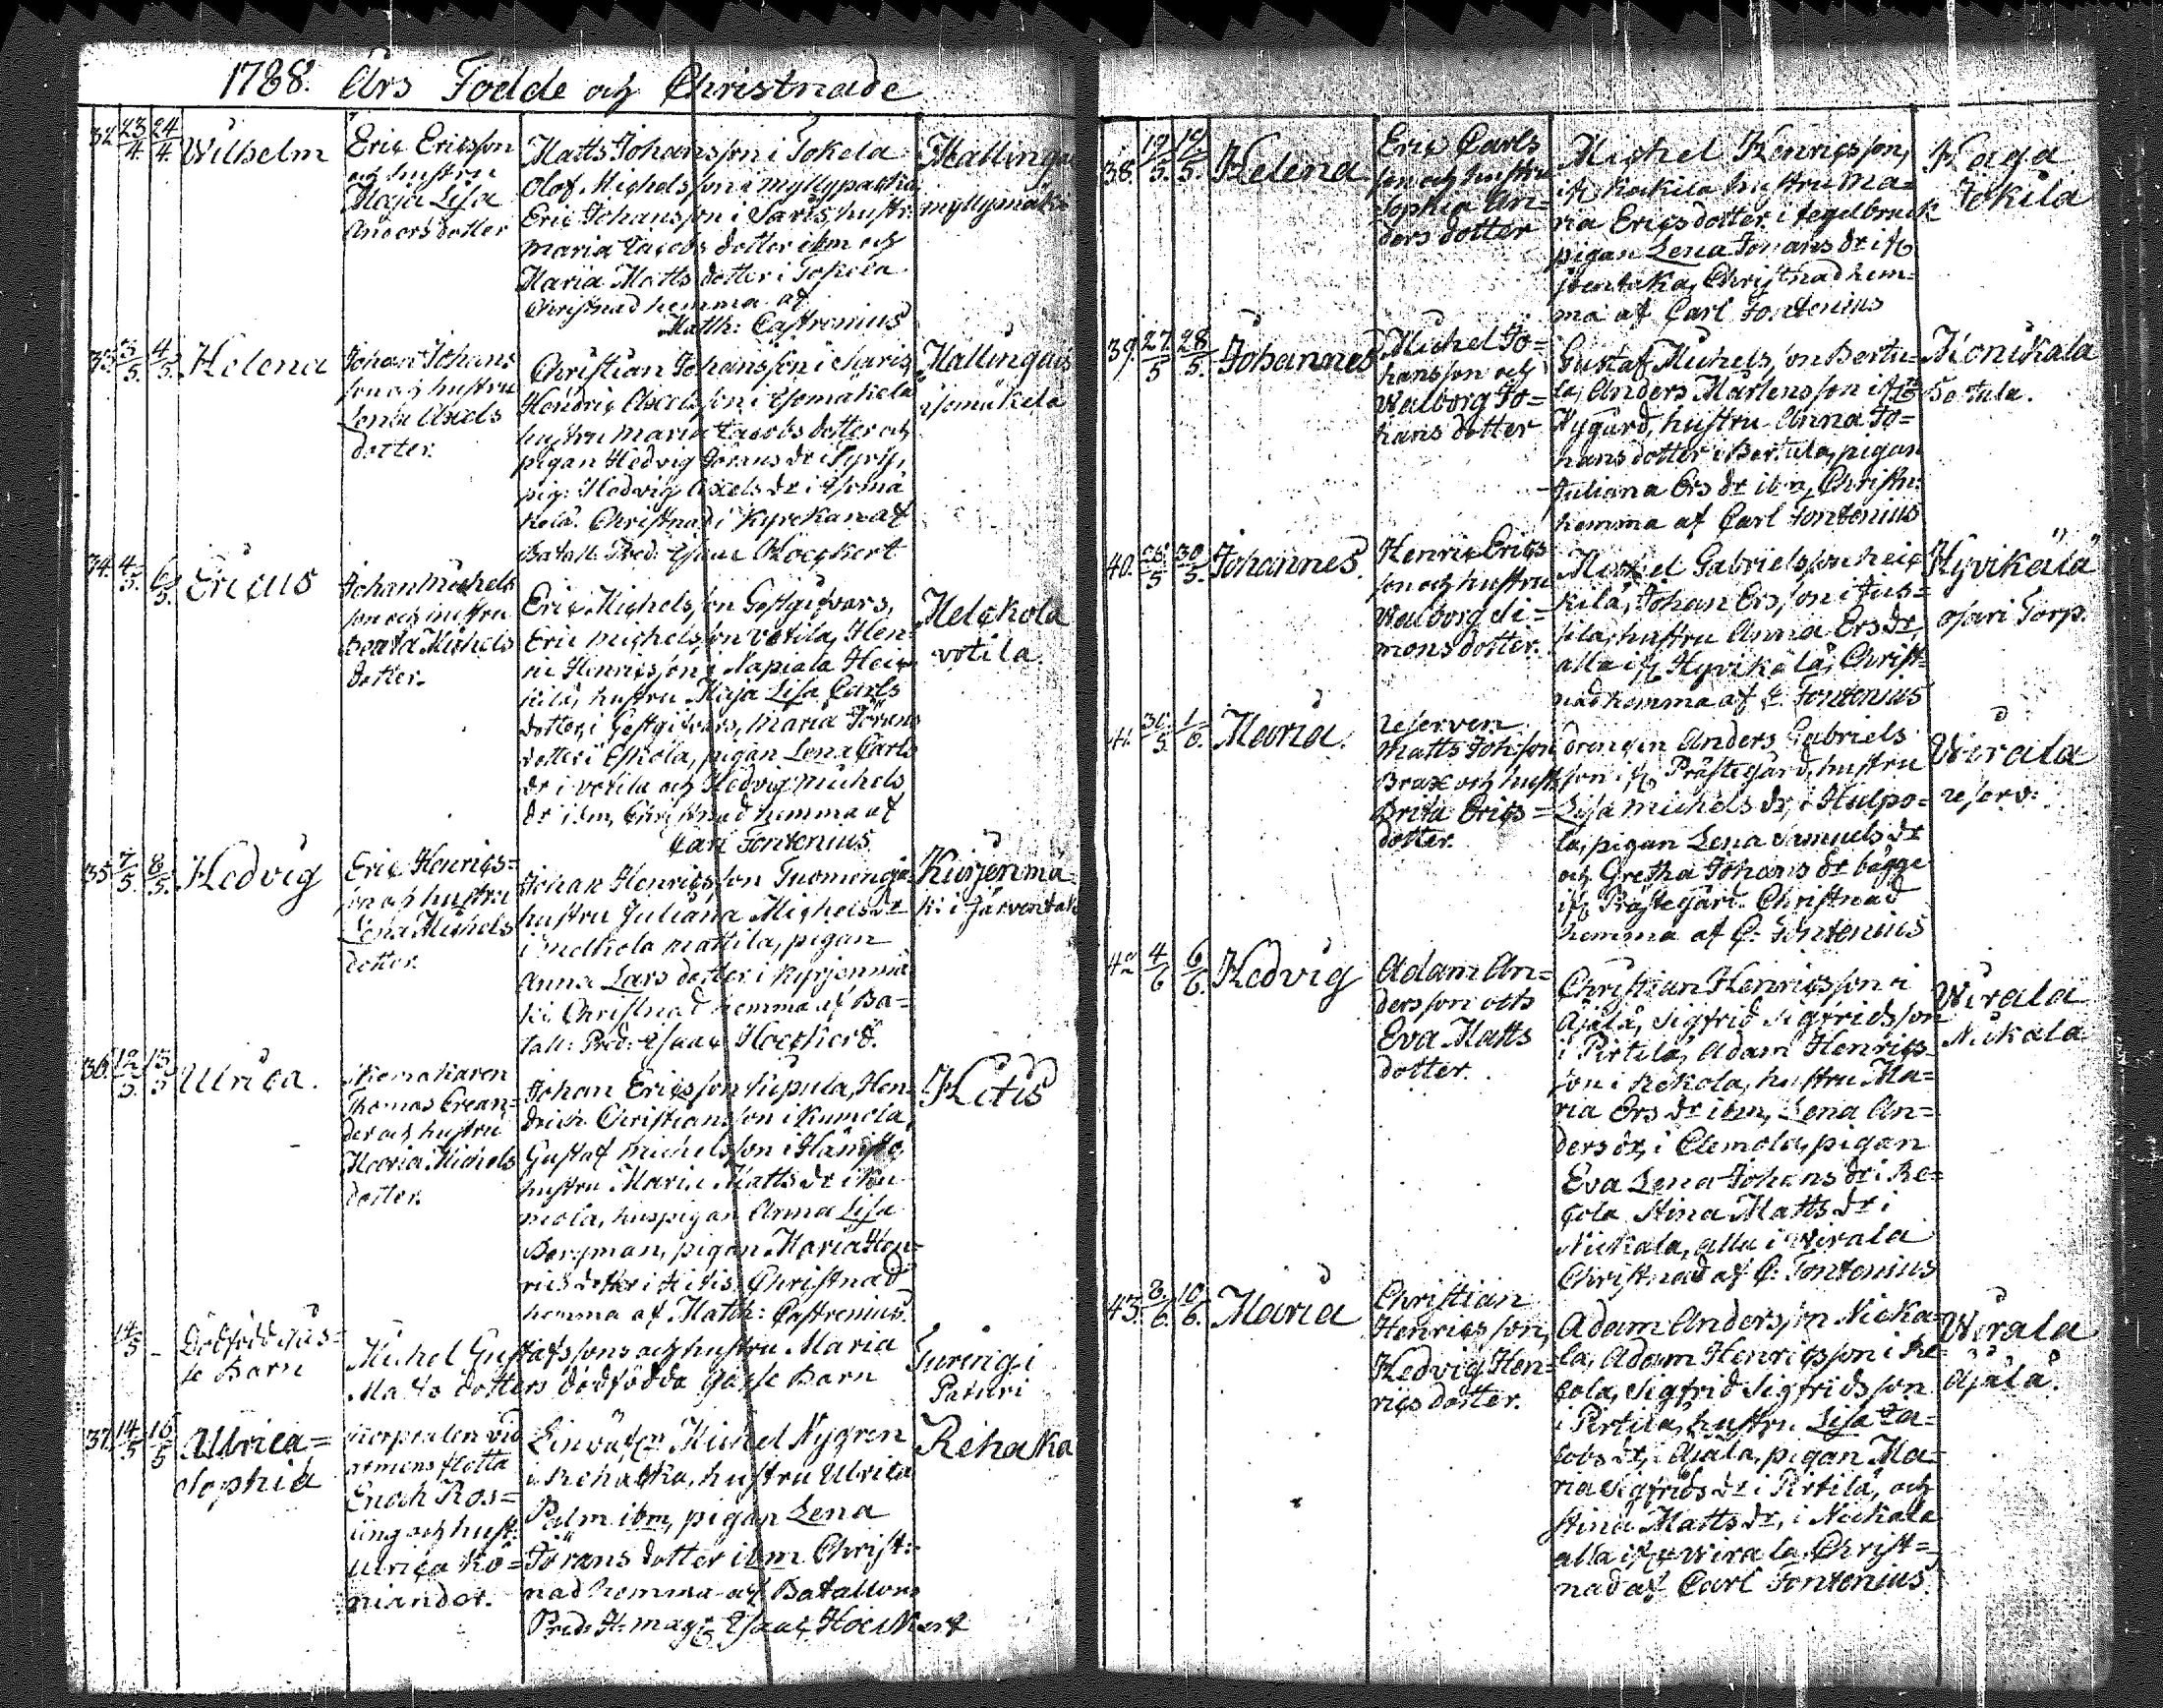 1788. Års Födde och Christnade
32. 23/4. 24/4. Wilhelm
Eric Ericsson
och hustru
Maja Lisa
Andersdotter
Matts Johansson i Jokela
Olof Michelsson i myllypacka
Eric Johansson i Saris, hustr:
Maria Jacobs dotter ibm och
Maria Matts dotter i Jokela
Christnad hemma af
Matth: Castrenius
Hallinga
myllymäki
33. 3/5. 4/5. Helena
Johan Johans
son och hustru
Lena Axels
dotter.
Christian Johansson i Saris
Hendric Axelsson i
hustru Maria Jacobs dotter och
pigan Hedvig Görans dr i
pig: Hedvig Axels dr i
kelä. Christnad i Kyrckan af
Batall: Pred: Esaac Hoeckert
Hallingais
isomäkelä
34. 4/5. 6/5. Ericus
Johan Michels
son och hustru
Beata Michels
dotter.
Eric Michelsson Gestgifvars,
Eric Michelsson votila, Hen-
ric Henricsson i Napiala Heic
kilä, hustru Maja Lisa Carls
dotter, i Gestgifvars, Maria Görans
dotter i Eskola, pigan Lena Carls
dr i votila och Hedvig Michels
dr ibm, Christnad hemma af
Carl Fontenius
Melckola
votila.
35. 7/5. 8/5. Hedvig
Eric Henrics=
son och hustru
Lena Michels
dotter.
Johan Henricsson Tuomenoja
hustru Juliana Michels dr
i melkola mattila, pigan
Anna Lars dotter i Kyrjenmä
ki Christnad hemma af Ba=
tall: Pred: Esaac Hoeckerd.
Kurjenmä
ki i Järventaka
36. 12/5. 13/5 Ulrica.
Thomas
der och hustru
Maria Michels
dotter.
Johan Ericsson Supula, Hen
dric Christiansson i Kumola,
Gustaf Michelsson i
hustru Maria Matts dr i Ku
mola, huspigan Anna Lisa
Bergman, pigan Maria Hen=
rics dotter i Hitis. Christnad
hemma af Matth: Castrenius.
Hitis
14/5 – Dödfödd gås=
se Barn
Michel Gustafssons och hustru Maria
Matts dotters dödfödda gåsse Barn
Turengi
Paturi
37. 14/5 16/5 Ullrica=
Sophia
Corporalen vid
armens flotta
Enoch Ros=
ling och hust:
Ulrica Ko=
niander.
Michel Nygren
i Rehakka, hustru Ulrica
Palm ibm, pigan Lena
Görans dotter ibm Christ:
nad hemma af Batallions
Pred: H: mag: Esaac Hoeckert
Rehaka
38. 19/5. 19/5. Helena.
Eric Carls
son och hustru
Sophia An=
ders dotter
Michel Henricsson,
ifr Kockila hustru Ma=
ria Ericsdotter i Tegelbruck
pigan Lena Johans dr ifr
Christnad hem=
ma af Carl Fontenius
Haga
Jokila
39. 27/5 28/5. Johannes
Michel Jo=
hansson och
Walborg Jo=
hans dotter
Gustaf Michelsson Bertu=
la, Anders Mårtensson ifr
Nygård, hustru Anna Jo=
hans dotter i Bertula, pigan
Juliana Ers dr ibm, Christn:
hemma af Carl Fontenius
Monikala
Bertula.
40. 28/5 30/5. Johannes.
Henric Erics
son och hustru
Walborg Si=
monsdotter.
Michel Gabrielsson heic
kilä, Johan Ersson i Jus=
sila, hustru Anna Ers dr,
alla ifr Hyvikälä, Christ=
nad hemma af C. Fontenius
Hyvikälä
ojari Torp.
41. 31/5. 1/6. Maria.
reserven
Matts Johsson
Brax och hust
Brita Erics=
dotter.
drengen Anders Gabriels
son ifr Prästegård, hustru
Lisa Michels dr, i Hulpo=
la, pigan Lena Samuels dr
och Gretha Johans dr bägge
ifr Prästegård. Christnad
hemma af C. Fontenius
Wirala
reserv:
42 4/6 6/6. Hedvig
Adam An=
dersson och
Eva Matts
dotter.
Christian Henricsson i
Äjälä, Sigfrid Sigfridsson
i Pirtilä, Adam Henrics=
son i Rekola, hustru Ma=
ria Ers dr ibm, Lena An=
ders dr, i Clemola, pigan
Eva Lena Johans dr i Re=
cola Stina Matts dr i
Nickala, alla i Wirala
Christnad af C. Fontenius
Wirala
Nickala
43. 8/6. 10/6. Maria
Christian
Henricsson,
Hedvig Hen=
rics dotter.
Adam Andersson Nicka=
la, Adam Henricsson i Re=
cola, Sigfrid Sigfridsson
i Pirtilä, hustru Lisa Ja=
cobs dr, i Äjälä, pigan Ma=
ria Sigfrids dr i Pirtilä, och
Stina Matts dr, i Nickala
alla ifr Wirala, Christ=
nad af Carl Fontenius.
Wirala
Äjälä.